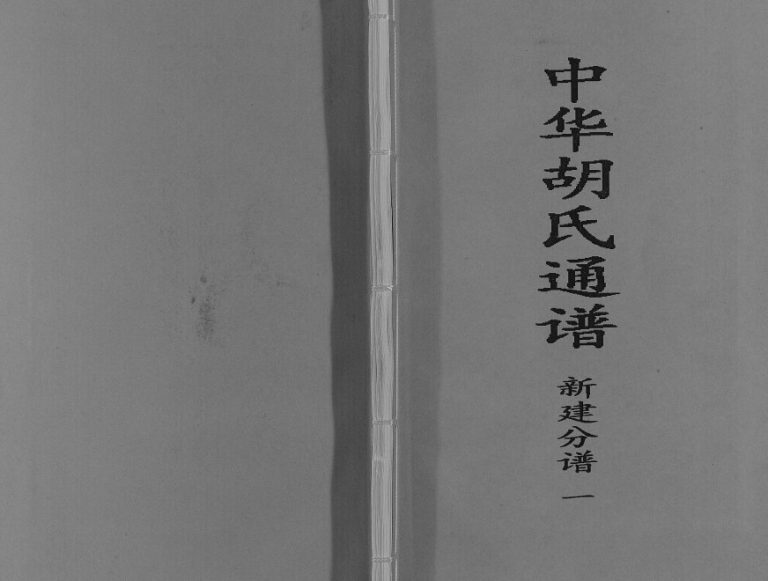 中华胡氏通谱
新建分谱 一